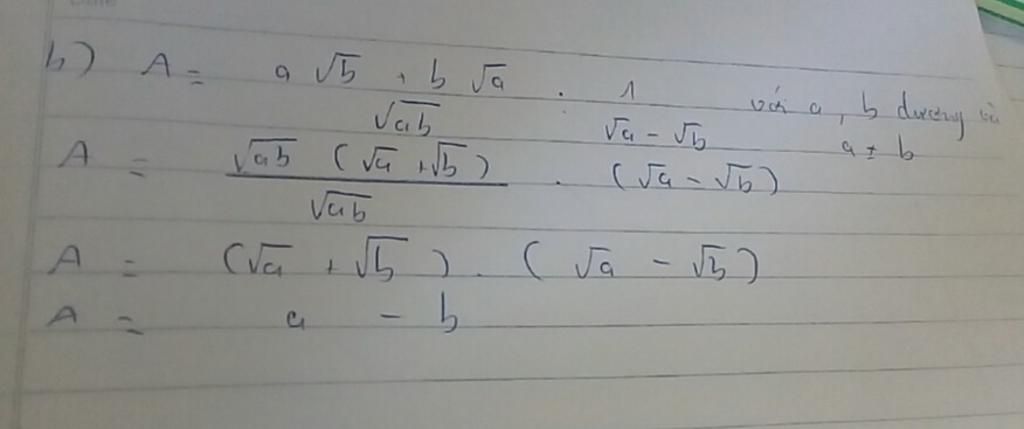 b) A = a √b + b √a / √ab . 1 / √a - √b với a, b dương và a ≠ b
A = √ab (√a + √b) / √ab . (√a - √b)
A = (√a + √b) . (√a - √b)
A = a - b